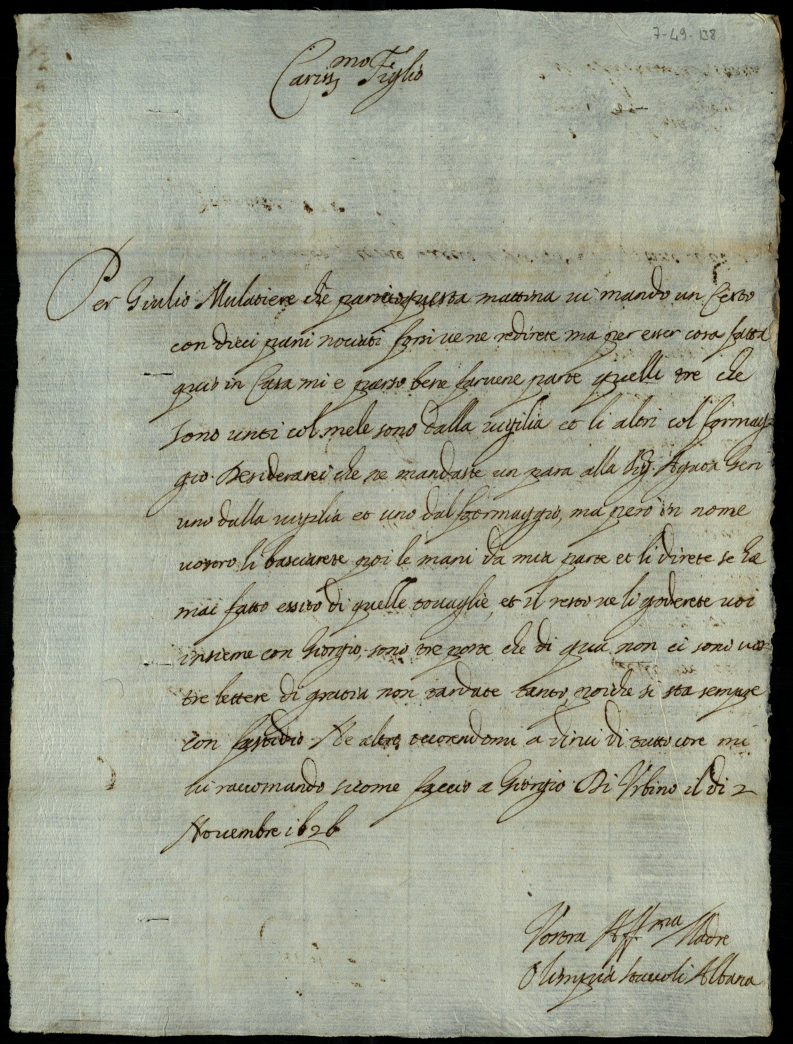 7-49-138
Cariss.mo Figlio
Per Giulio Mulatiere che parte questa mattina vi mando un Cesto
con dieci pani nociati forsi ve ne redirete ma per esser cosa fatta
quio in Casa mi e parso bene farvene parte quelli tre che
sono unti col mele sono dalla vigilia et li altri col formag
gio. Desiderarei che ne mandaste un para alla Sig.
uno dalla vigilia et uno dal formaggio, ma pero in nome
vostro li basciarete poi le mani da mia parte et li direte se ha
mai fatto essito di quelle tovaglie, et il resto ve li goderete voi
insieme con Giorgio, sono tre poste che di qua non ci sono vos
tre lettere di gratia non tardate tanto, poiche si sta sempre
con fastidio Ne altro occorendomi a dirvi di tutto core mi
vi raccomando sicome faccio a Giorgio Di Urbino il di 2
Novembre 1626
Vostra Aff.ma Madre
Olimpia Staccoli Albana